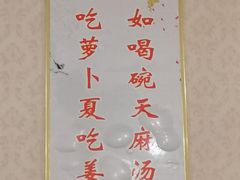 如喝碗天麻汤
吃萝卜夏吃姜